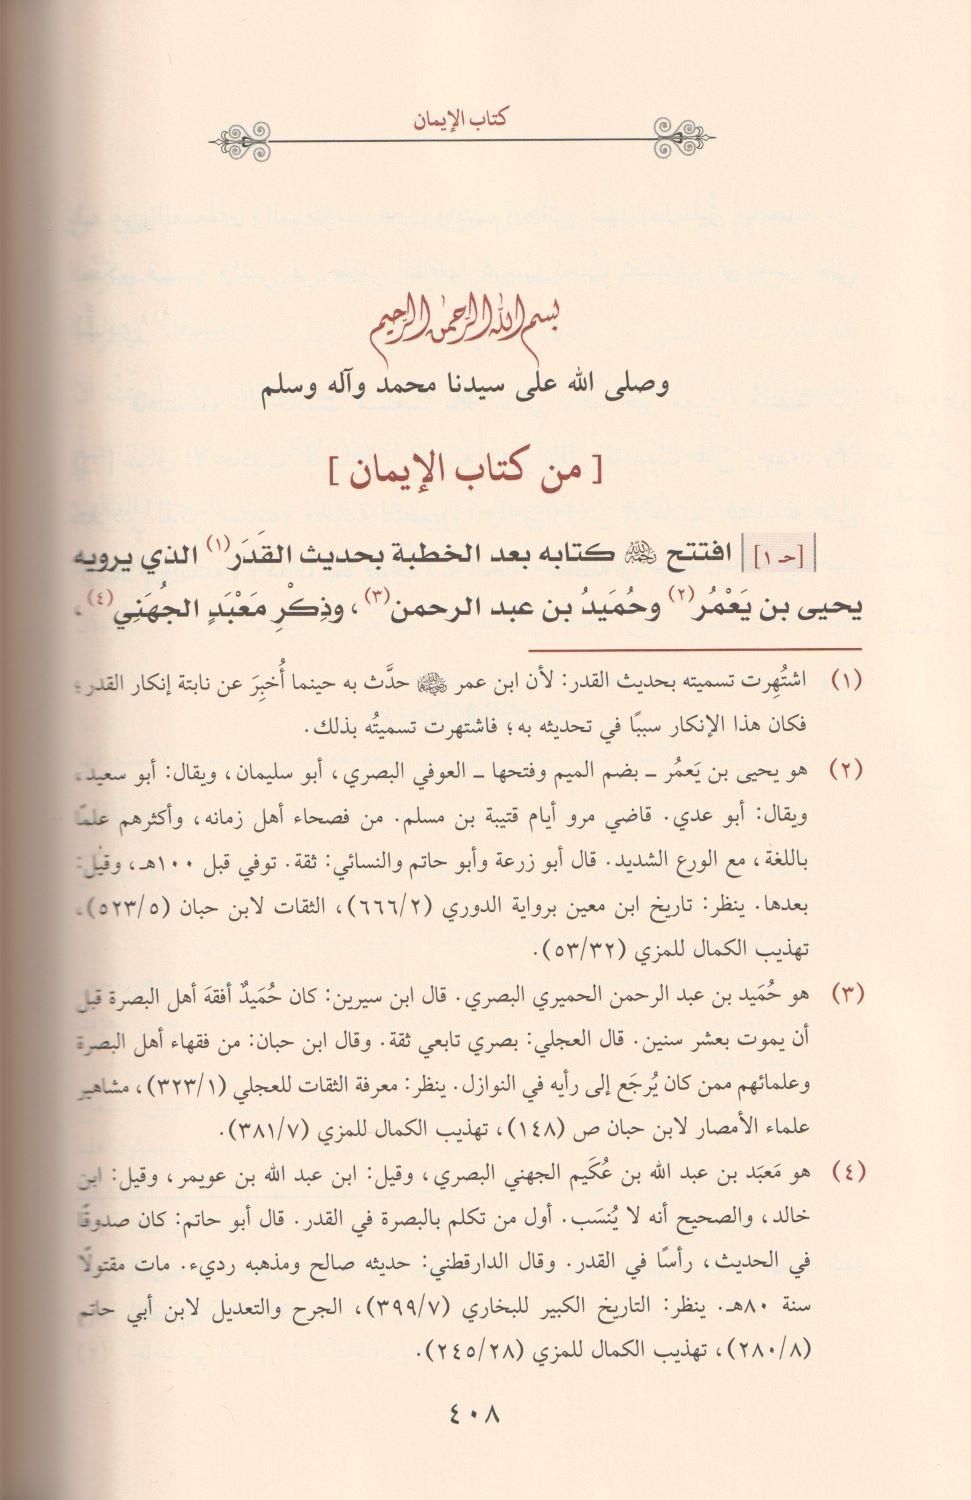 كتاب الإيمان
بسم الله الرحمن الرحيم
وصلى الله على سيدنا محمد وآله وسلم
[ من كتاب الإيمان ]
[حـ ١] افتتح رحمه الله كتابه بعد الخطبة بحديث القَدَر(١) الذي يرويه
يحيى بن يَعْمُر(٢) وحُمَيدُ بن عبد الرحمن(٣)، وذِكْرِ مَعْبَدٍ الجُهَنِي(٤)،
(١) اشتُهِرت تسميته بحديث القدر: لأن ابن عمر حدَّث به حينما أُخبِرَ عن نابتة إنكار القدر؛
فكان هذا الإنكار سببًا في تحديثه به؛ فاشتهرت تسميتُه بذلك.
(٢) هو يحيى بن يَعمُر ـ بضم الميم وفتحها ـ العوفي البصري، أبو سليمان، ويقال: أبو سعيد،
ويقال: أبو عدي. قاضي مرو أيام قتيبة بن مسلم. من فصحاء أهل زمانه، وأكثرهم علمًا
باللغة، مع الورع الشديد. قال أبو زرعة وأبو حاتم والنسائي: ثقة. توفي قبل ١٠٠هـ، وقيل:
بعدها. ينظر: تاريخ ابن معين برواية الدوري (٦٦٦/٢)، الثقات لابن حبان (٥٢٣/٥)،
تهذيب الكمال للمزي (٥٣/٣٢).
(٣) هو حُمَيد بن عبد الرحمن الحميري البصري. قال ابن سيرين: كان حُمَيدٌ أفقهَ أهل البصرة قبل
أن يموت بعشر سنين. قال العجلي: بصري تابعي ثقة. وقال ابن حبان: من فقهاء أهل البصرة
وعلمائهم ممن كان يُرجَع إلى رأيه في النوازل. ينظر: معرفة الثقات للعجلي (٣٢٣/١)، مشاهير
علماء الأمصار لابن حبان ص (١٤٨)، تهذيب الكمال للمزي (٣٨١/٧).
(٤) هو مَعبَد بن عبد الله بن عُكَيم الجهني البصري، وقيل: ابن عبد الله بن عويمر، وقيل: ابن
خالد، والصحيح أنه لا يُنسَب. أول من تكلم بالبصرة في القدر. قال أبو حاتم: كان صدوقًا
في الحديث، رأسًا في القدر. وقال الدارقطني: حديثه صالح ومذهبه رديء. مات مقتولًا
سنة ٨٠هـ. ينظر: التاريخ الكبير للبخاري (٣٩٩/٧)، الجرح والتعديل لابن أبي حاتم
(٢٨٠/٨)، تهذيب الكمال للمزي (٢٤٥/٢٨).
٤٠٨